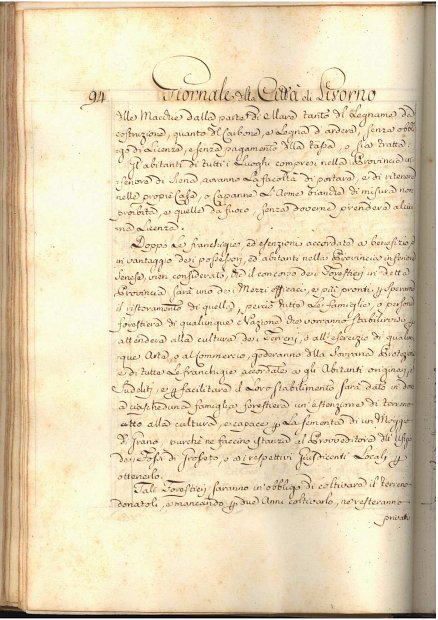 94 Giornale della Città di Livorno
delle Macchie dalla parte di e Mare tanto del Legname da
costruzione, quanto del Carbone, e Legna d'ardere, senza obbli
go di Licenza, e senza pagamento della tassa, o sia tratta:
Gl'abitanti di tutti i Luoghi compresi nella Provincia in
feriore di Siena avranno la facoltà di portare, e di ritenere
nelle proprie Case, o Capanne l'Arme bianche di misura non
proibita, e quelle da fuoco, senza doverne prendere alcu
na Licenza.
Doppo le franchigie, ed esenzioni accordate a benefizio e
in vantaggio dei possessori, ed abitanti nella Provincia inferiore
Senese, vien considerato, che il concorso dei Forestieri in detta
Provincia sarà uno dei Mezzi efficaci, e più pronti p sperarne
il ristoramento di quella, perciò tutte le famiglie, o persone
forestiere di qualunque Nazione che vorranno stabilirvisi p
attendere alla cultura dei Terreni, o all'esercizio di qualun
que Arte, o al Commercio, goderanno della Sovrana Protezione
e di tutte le franchigie accordate a gli Abitanti originarj, e
Sudditi, e p facilitare il Loro stabilimento sarà dato in dono
a ciascheduna famiglia forestiera un'estenzione di terreno
atto alla cultura, e capace p la sementa di un Moggio
di grano, purchè ne faccino istanza al Provveditore dell'Ufizio
dei Fossi di Grosseto, o ai respettivi Iusdicenti Locali p
ottenerlo.
Tali Forestieri saranno in obbligo di coltivare il terreno
donatoli, e mancando p due Anni coltivarlo, ne resteranno
privati